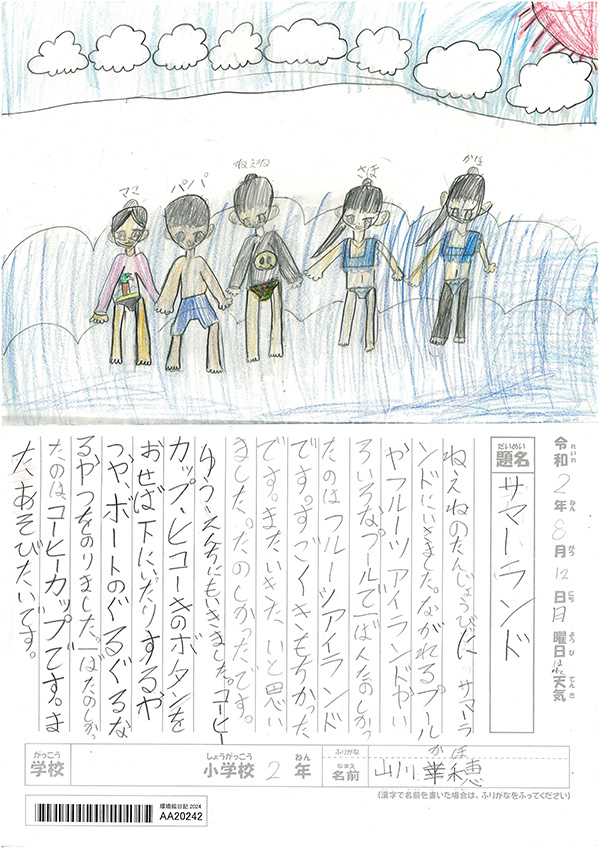 ママ
パパ
ねえね
さほ
かほ
令和2年8月12日月曜日はれ天気
れいわ ねん がつ にち ようび てんき
だいめい
題名
サマーランド
ねえねのたんじょうびに サマーラ
ンドにいきました。ながれるプール
やフルーツアイランドやい
ろいろなプールで一ばんたのしかっ
たのはフルーツアイランド
です。すごくきもちかった
です。またいきたいと思い
ました。たのしかったです。
ゆうえんちにもいきました。コーヒー
カップ、ヒコーキのボタンを
おせば下にいたりするや
つや、ボートのぐるぐるな
るやつをのりました。一ばんたのしかっ
たのはコーヒーカップです。ま
たあそびたいです。
がっこう
学校
しょうがっこう ねん
小学校2年
ふりがな
かほ
なまえ
名前
山川華穂恵
(漢字で名前を書いた場合は、ふりがなをふってください)
環境絵日記 2024
AA20242